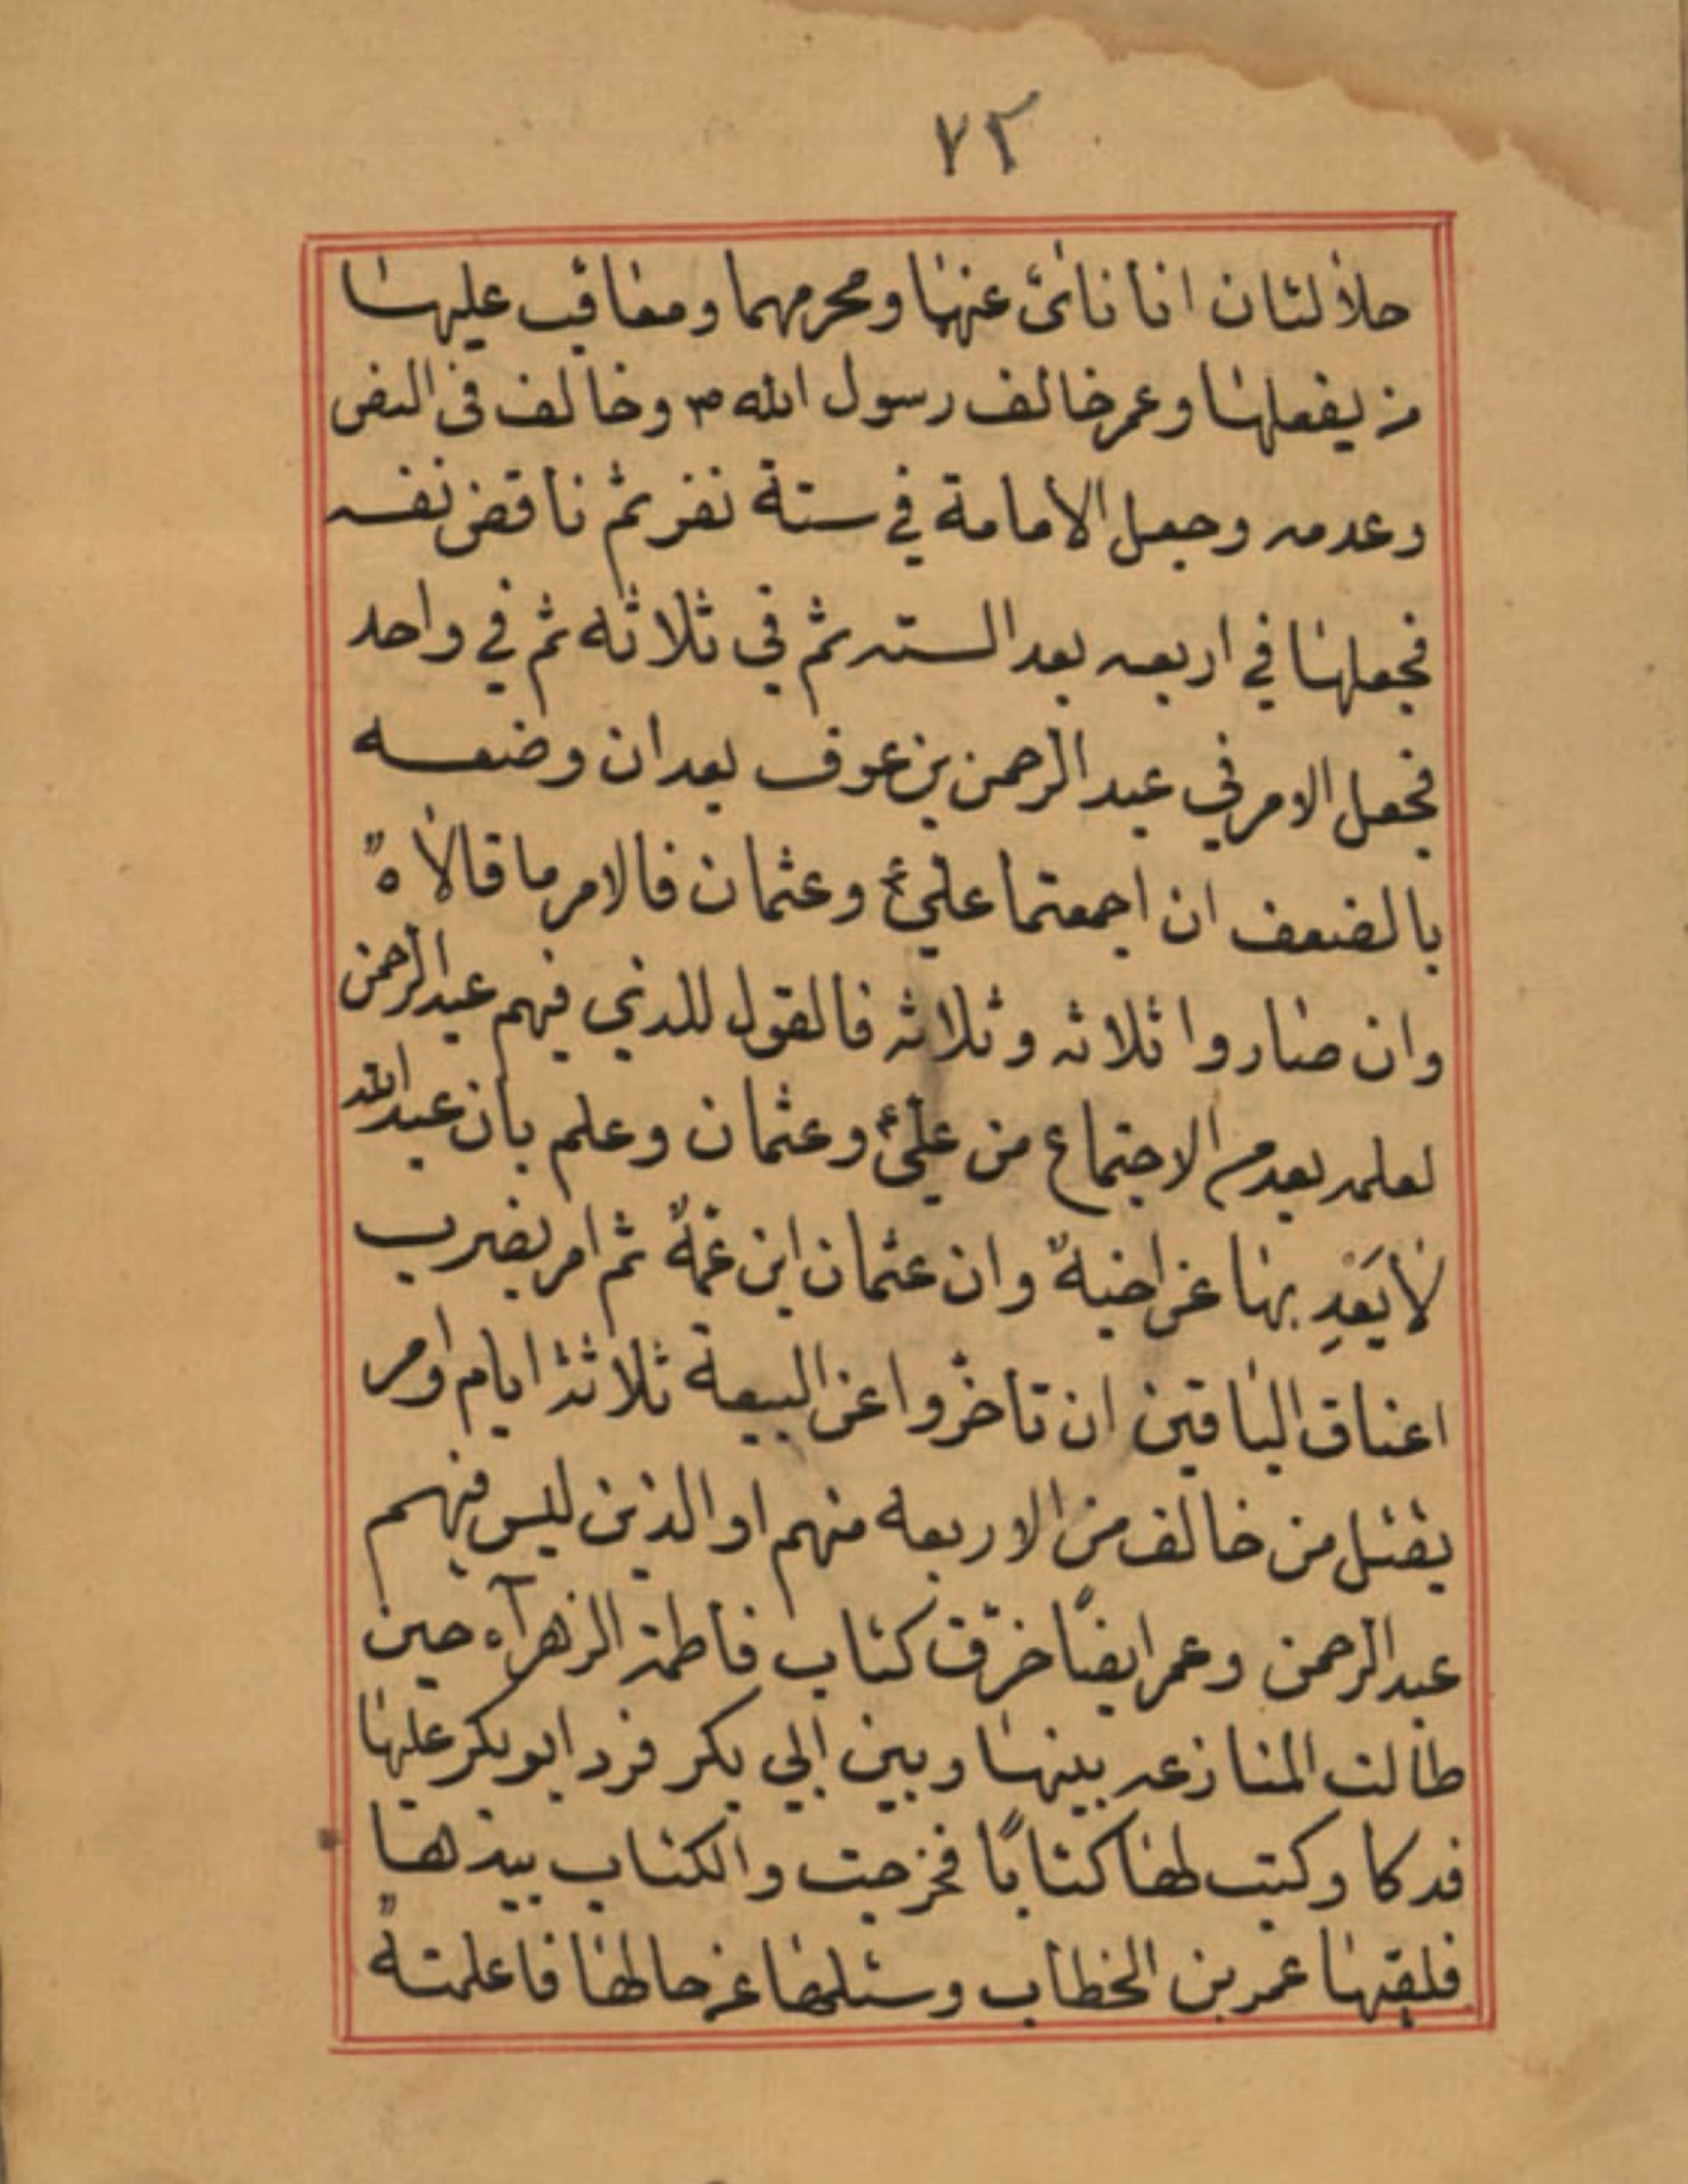 ٧٢
حلالتان انا نائ عنها ومحرمهما ومعاقب عليها
من يفعلها وعمر خالف رسول الله ص وخالف فى النص
وعدمه وجعل الامامة في ستة نفر ثم ناقض نفسه
فجعلها في اربعه بعد السته ثم في ثلاثه ثم في واحد
فجعل الامر في عبد الرحمن بن عوف بعد ان وضعه
بالضعف ان اجمعتما علي ع وعثمان فالامر ما قالاه
وان صاروا ثلاثه وثلاثه فالقول للذي فيهم عبد الرحمن
لعلمه بعدم الاجتماع من علي ع وعثمان وعلم بان عبد الله
لا يَعْدِ بها عن اخيه وان عثمان ابن عمه ثم امر بضرب
اعناق الباقين ان تاخروا عن البيعة ثلاثة ايام اومر
يقتل من خالف من الاربعه منهم او الذين ليس فيهم
عبد الرحمن وعمر ايضًا خرّق كتاب فاطمة الزهرآء حين
طالت المنازعه بينها وبين ابي بكر فرد ابو بكر عليها
فدكا وكتب لها كتابًا فخرجت والكتاب بيدها
فلقيها عمر بن الخطاب وسئلها عن حالها فاعلمته